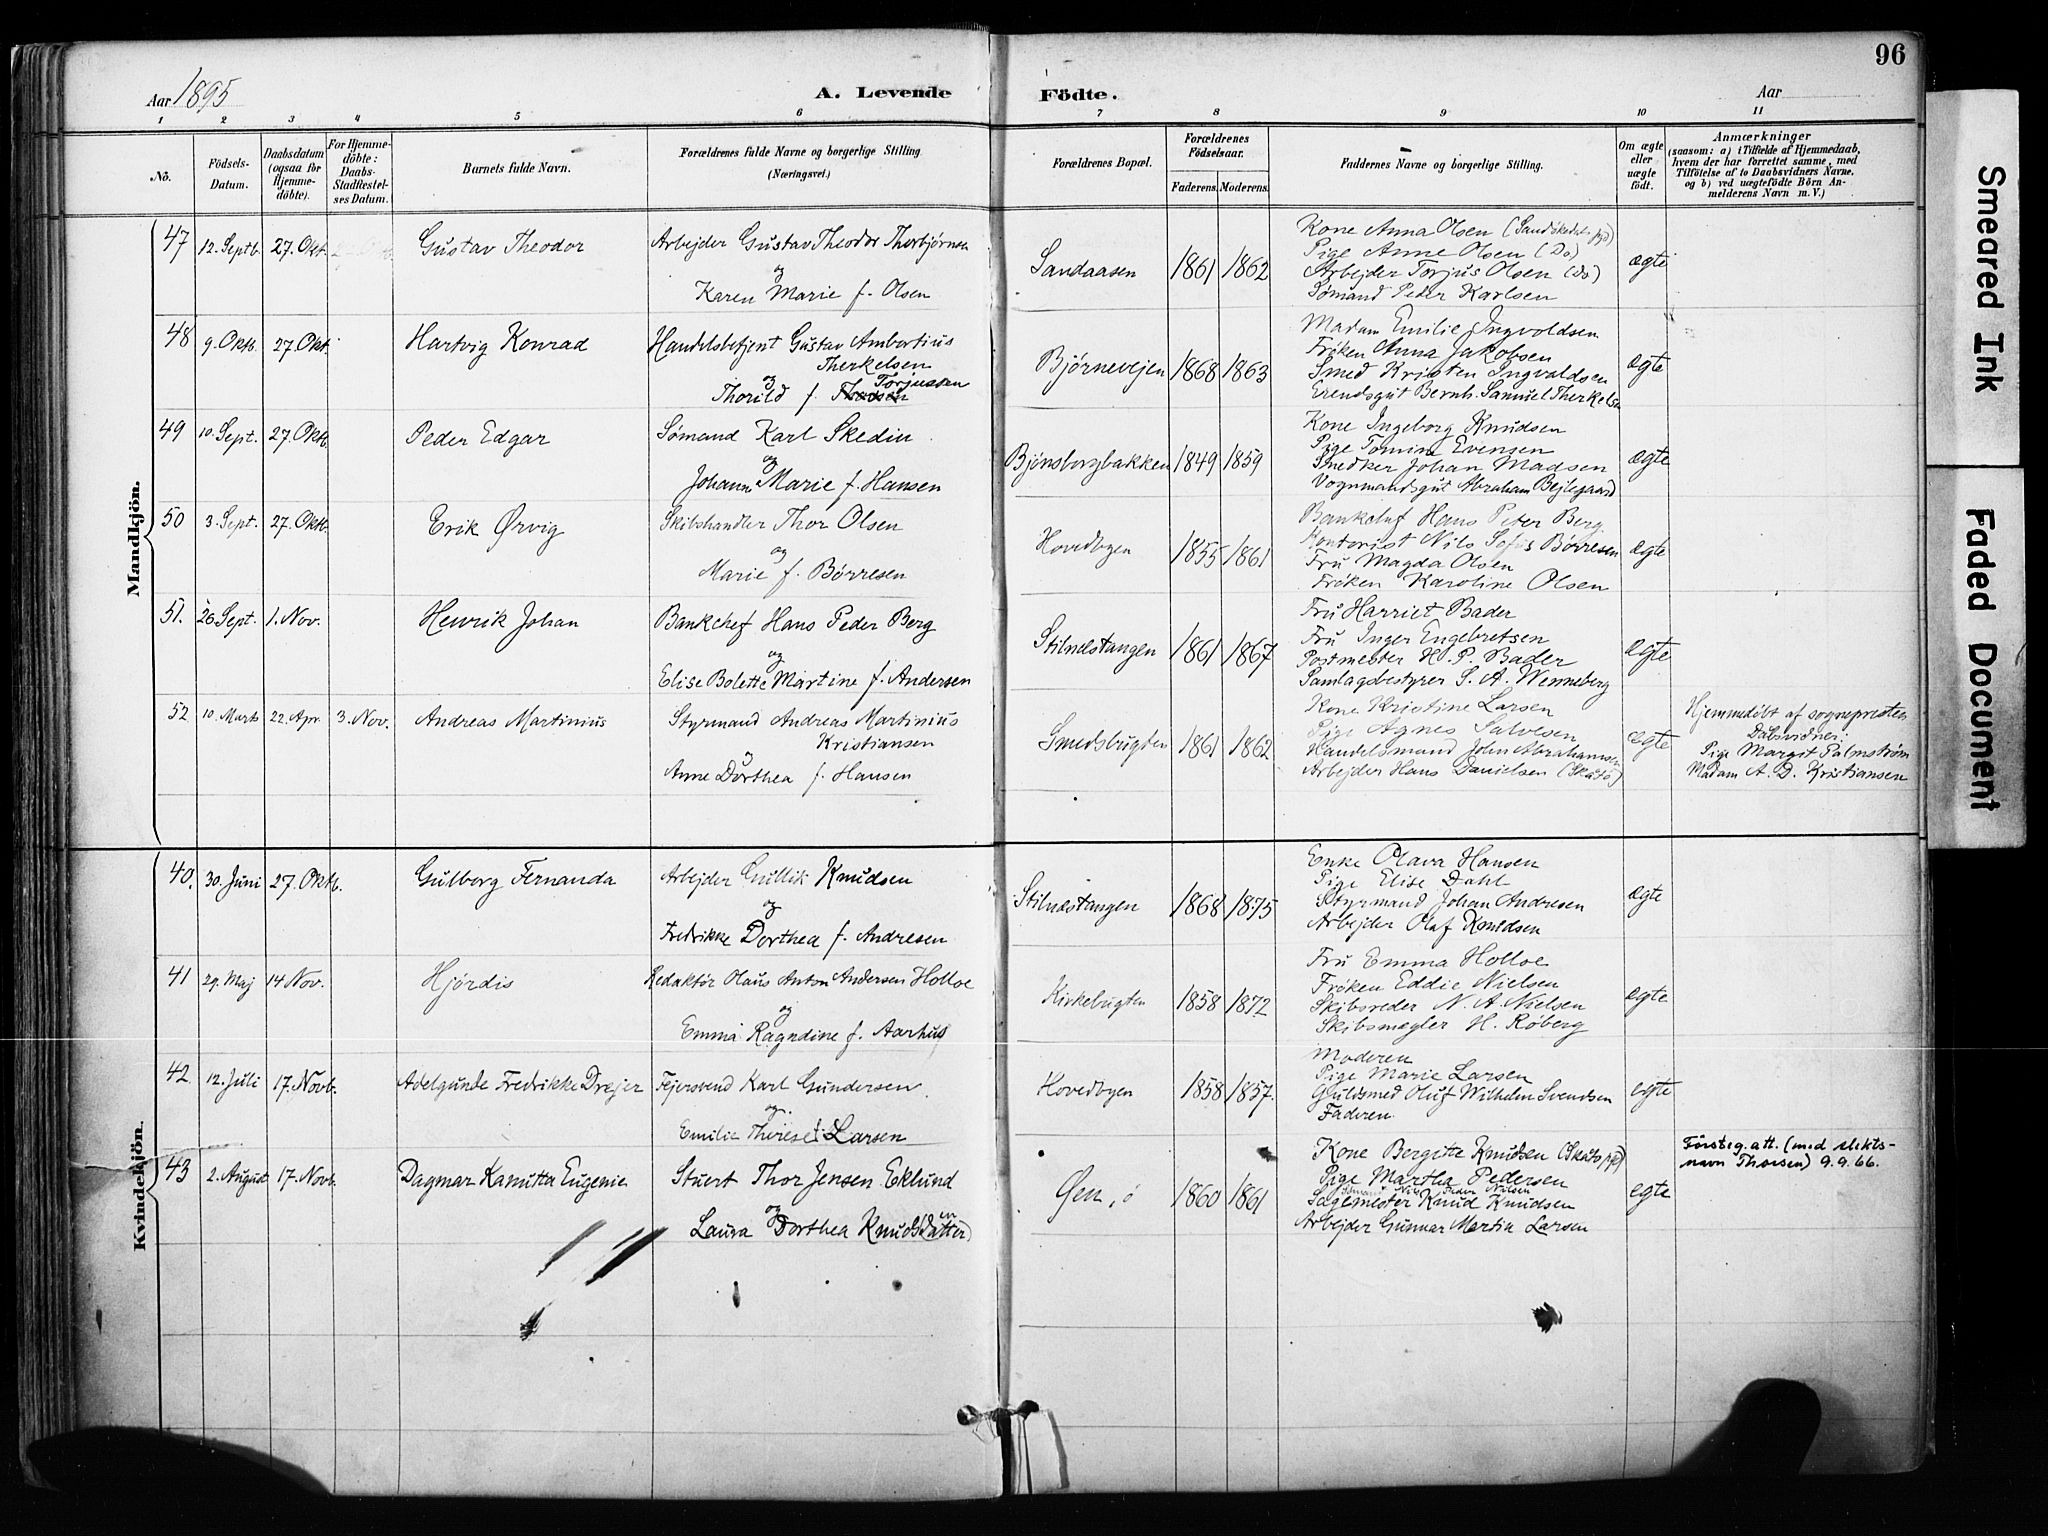 96
Aar 1895
A. Levende
Födte.
Aar
1 2 3 4 5 6 7 8 9 10 11
No.
Födsels-
Datum.
Daabsdatum
(ogsaa for
Hjemme-
döbte).
For Hjemme-
döbte:
Daabs-
Stadfæstel-
ses Datum.
Barnets fulde Navn.
Forældrenes fulde Navne og borgerlige Stilling
(Næringsvei.)
Forældrenes Bopæl.
Forældrenes
Födselsaar.
Faderens. Moderens.
Faddernes Navne og borgerlige Stilling.
Om ægte
eller
uægte
födt.
Anmærkninger
(saasom: a) i Tilfælde af Hjemmedaab,
hvem der har forrettet samme, med
Tilföielse af to Daabsvidners Navne,
og b) ved uægtefödte Börn An-
melderens Navn m. V.)
Mandkjön.
47 12. Septb. 27. Okt. Gustav Theodor
Arbejder Gustav Theodor Thorbjørnsen
og
Karen Marie f. Olsen
Sandaasen 1861 1862
Kone Anna Olsen
Pige Anne Olsen (Do)
Arbejder Torjus Olsen (do)
Sømand Peder Karlsen
ægte
48 9. Oktb. 27. Okt. Hartvig Konrad
Handelsbetjent Gustav Ambortius
Therkelsen
og Torjussen
Thorild f.
Bjørnevejen 1868 1863
Madam Emilie Ingvoldsen
Frøken Anna Jakobsen
Smed Kristen Ingvaldsen
Erendsgut Bernh. Samuel Therkelsen
ægte
49 10. Sept. 27. Oktb. Peder Edgar
Sømand Karl Skedin
og
Johanne Marie f. Hansen
Bjønsborgbakken 1849 1859
Kone Ingeborg Knudsen
Pige Tomine Evensen
Snedker Johan Madsen
Vognmandsgut Abraham Bejlegaard
ægte
50 3. Sept. 27. Oktb. Erik Ørvig
Skibshandler Thor Olsen
og
Marie f. Börresen
Hovedbyen 1855 1861
Bankchef Hans Peter Berg
Kontorist Nils Sofus Børresen
Fru Magda Olsen
Frøken Karoline Olsen
ægte
51. 26. Sept. 1. Nov. Henrik Johan
Bankchef Hans Peder Berg
og
Elise Bolette Martine f. Andersen
Stilnæstangen 1861 1867
Fru Harriet Bader
Fru Inger Engebretsen
Postmester H. P. Bader
Samlagsbestyrer S. A. Wenneberg
ægte
52 10. Marts 22. Apr. 3. Nov. Andreas Martinius
Styrmand Andreas Martinius
Kristiansen
og
Anne Dorthea f. Hansen
Smedsbugten 1861 1862
Kone Kristine Larsen
Pige Agnes Salvesen
Handelsmand John Abrahamsen
Arbejder Hans Danielsen (Skåtø)
ægte
Hjemmedöbt af sognepresten
Dåbsvidner:
Pige Margit Palmstrøm
Madam A. D. Kristiansen
Kvindekjön.
40. 30. Juni 27. Oktb. Gulborg Fernanda
Arbejder Gullik Knudsen
og
Fredrikke Dorthea f. Andresen
Stilnæstangen 1868 1875
Enke Olava Hansen
Pige Elise Dahl
Styrmand Johan Andresen
Arbejder Olaf Knudsen
ægte
41 29. Maj 14 Nov. Hjørdis
Redaktør Olaus Anton Andersen Holloe
og
Emma Ragndine f. Aarhus
Kirkebugten 1858 1872
Fru Emma Holloe
Frøken Eddie Nielsen
Skibsreder N. A. Nielsen
Skibsmegler H. Røberg
ægte
42. 12. Juli 17. Novb. Adelgunde Fredrikke Drejer
Fejersvend Karl Gundersen
og
Emilie Therese f. Larsen
Hovedbyen 1858 1857.
Moderen
Pige Marie Larsen
Guldsmed Oluf Wilhelm Svendsen
Faderen
egte
43 2. August 17. Novb. Dagmar Kanutta Eugenie
Stuert Thor Jensen Eklund
og
Laura Dorthea Knudsdatter
Øen 1860 1861
Kone Bergitte Knudsen
Pige Martha Pedersen
Sømand Nils Peder Nilsen
Sagemester Knud Knudsen
Arbejder Gunnar Martin Larsen
egte
Førsteg. att. (med slekts-
navn Thorsen) 9.9.66.
Smeared Ink
Faded Document